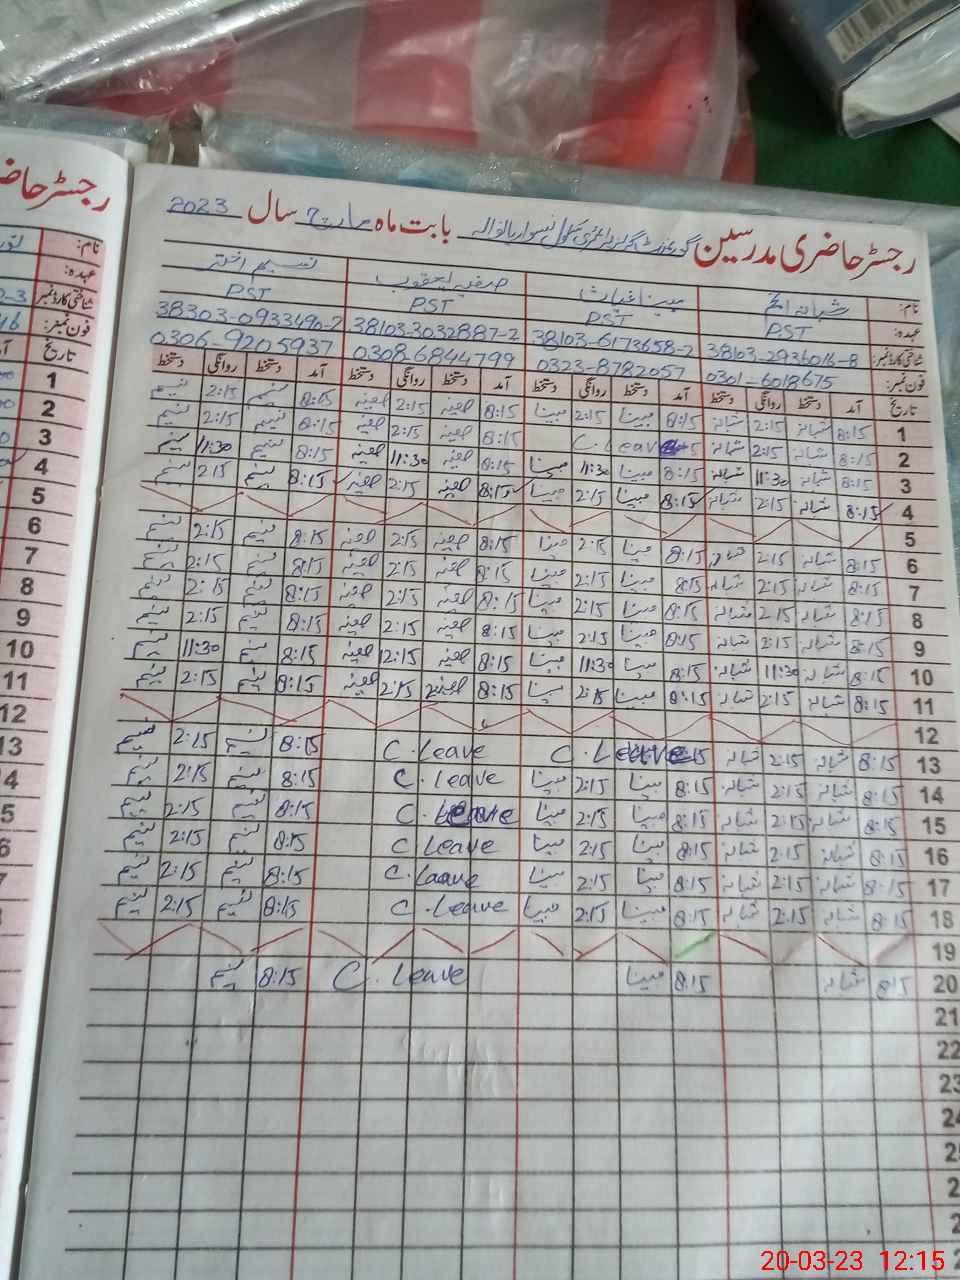 رجسٹر حاضری مدرسین گورنمنٹ گرلز پرائمری سکول نسوار بالوالہ بابت ماہ مارچ سال 2023
نام: شبانہ انجم مبینا غیاث صفیہ یعقوب نسیم اختر
عہدہ: PST PST PST PST
شناختی کارڈ نمبر: 38103-2936016-8 38103-6173658-2 38103-3032887-2 38303-0933490-2
فون نمبر: 0301-6018675 0323-8782057 0308-6844799 0306-9205937
تاریخ آمد دستخط روانگی دستخط آمد دستخط روانگی دستخط آمد دستخط روانگی دستخط آمد دستخط روانگی دستخط
1 8:15 شبانہ 2:15 شبانہ 8:15 مبینا 2:15 مبینا 8:15 صفیہ 2:15 صفیہ 8:15 نسیم 2:15 نسیم
2 8:15 شبانہ 2:15 شبانہ C. Leave 8:15 صفیہ 2:15 صفیہ 8:15 نسیم 2:15 نسیم
3 8:15 شبانہ 11:30 شبانہ 8:15 مبینا 11:30 مبینا 8:15 صفیہ 11:30 صفیہ 8:15 نسیم 11:30 نسیم
4 8:15 شبانہ 2:15 شبانہ 8:15 مبینا 2:15 مبینا 8:15 صفیہ 2:15 صفیہ 8:15 نسیم 2:15 نسیم
5
6 8:15 شبانہ 2:15 شبانہ 8:15 مبینا 2:15 مبینا 8:15 صفیہ 2:15 صفیہ 8:15 نسیم 2:15 نسیم
7 8:15 شبانہ 2:15 شبانہ 8:15 مبینا 2:15 مبینا 8:15 صفیہ 2:15 صفیہ 8:15 نسیم 2:15 نسیم
8 8:15 شبانہ 2:15 شبانہ 8:15 مبینا 2:15 مبینا 8:15 صفیہ 2:15 صفیہ 8:15 نسیم 2:15 نسیم
9 8:15 شبانہ 2:15 شبانہ 8:15 مبینا 2:15 مبینا 8:15 صفیہ 2:15 صفیہ 8:15 نسیم 2:15 نسیم
10 8:15 شبانہ 11:30 شبانہ 8:15 مبینا 11:30 مبینا 8:15 صفیہ 12:15 صفیہ 8:15 نسیم 11:30 نسیم
11 8:15 شبانہ 2:15 شبانہ 8:15 مبینا 2:15 مبینا 8:15 صفیہ 2:15 صفیہ 8:15 نسیم 2:15 نسیم
12
13 8:15 شبانہ 2:15 شبانہ 8:15 C. Leave C. Leave 8:15 نسیم 2:15 نسیم
14 8:15 شبانہ 2:15 شبانہ 8:15 مبینا 2:15 مبینا C. Leave 8:15 نسیم 2:15 نسیم
15 8:15 شبانہ 2:15 شبانہ 8:15 مبینا 2:15 مبینا C. Leave 8:15 نسیم 2:15 نسیم
16 8:15 شبانہ 2:15 شبانہ 8:15 مبینا 2:15 مبینا C Leave 8:15 نسیم 2:15 نسیم
17 8:15 شبانہ 2:15 شبانہ 8:15 مبینا 2:15 مبینا C. Laave 8:15 نسیم 2:15 نسیم
18 8:15 شبانہ 2:15 شبانہ 8:15 مبینا 2:15 مبینا C. Leave 8:15 نسیم 2:15 نسیم
19
20 8:15 شبانہ 8:15 مبینا C. Leave 8:15 نسیم
21
22
23
24
رجسٹر
نام:
عہدہ:
شناختی کارڈ نمبر
فون نمبر:
تاریخ
1
2
3
4
5
6
7
8
9
10
11
12
13
20-03-23 12:15